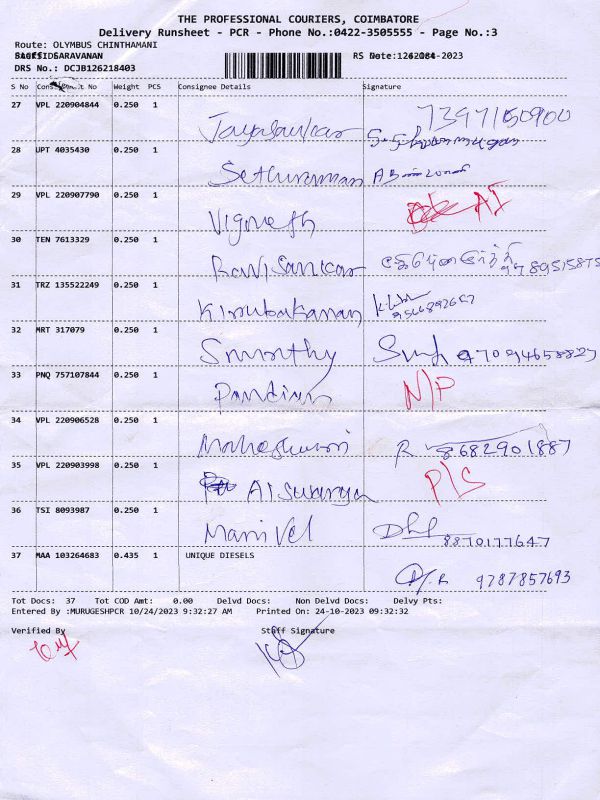 THE PROFESSIONAL COURIERS, COIMBATORE
Delivery Runsheet - PCR - Phone No.:0422-3505555 - Page No.:3
Route: OLYMBUS CHINTHAMANI
SARAVANAN
DRS No.: DCJB126218403
S No Weight PCS Consignee Details Signature
27 VPL 220904844 0.250 1 Jayasankar 7397150900
28 UPT 4035430 0.250 1 Sethuraman
29 VPL 220907790 0.250 1 Vignesh AI
30 TEN 7613329 0.250 1 Ravi Sankar
31 TRZ 135522249 0.250 1 Kirubakaran
32 MRT 317079 0.250 1 Smurthy
33 PNQ 757107844 0.250 1 Pandian N/P
34 VPL 220906528 0.250 1 Maheshwari R 8682901887
35 VPL 220903998 0.250 1 Aiswarya P/S
36 TSI 8093987 0.250 1 Manivel 8870177647
37 MAA 103264683 0.435 1 UNIQUE DIESELS
9787857693
Tot Docs: 37 Tot COD Amt: 0.00 Delvd Docs: Non Delvd Docs: Delvy Pts:
Entered By :MURUGESHPCR 10/24/2023 9:32:27 AM Printed On: 24-10-2023 09:32:32
Verified By Staff Signature